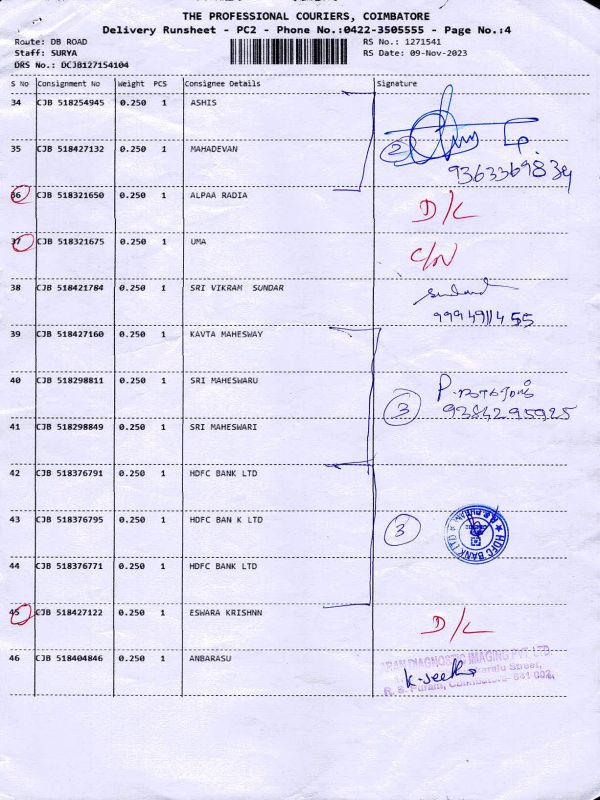 THE PROFESSIONAL COURIERS, COIMBATORE
Delivery Runsheet - PC2 - Phone No.:0422-3505555 - Page No.:4
Route: DB ROAD
Staff: SURYA
DRS No.: DCJB127154104
RS No.: 1271541
RS Date: 09-Nov-2023
S No Consignment No Weight PCS Consignee Details Signature
34 CJB 518254945 0.250 1 ASHIS
35 CJB 518427132 0.250 1 MAHADEVAN 2
36 CJB 518321650 0.250 1 ALPAA RADIA D/L
37 CJB 518321675 0.250 1 UMA C/N
38 CJB 518421784 0.250 1 SRI VIKRAM SUNDAR
39 CJB 518427160 0.250 1 KAVTA MAHESWAY
40 CJB 518298811 0.250 1 SRI MAHESWARU 3
9384295925
41 CJB 518298849 0.250 1 SRI MAHESWARI
42 CJB 518376791 0.250 1 HDFC BANK LTD
43 CJB 518376795 0.250 1 HDFC BAN K LTD 3 HDFC BANK LTD
44 CJB 518376771 0.250 1 HDFC BANK LTD
45 CJB 518427122 0.250 1 ESWARA KRISHNN D/L
46 CJB 518404846 0.250 1 ANBARASU
DIAGNOSTIC IMAGING PVT LTD.
Street,
R. S. Puram, Coimbatore- 641 002.